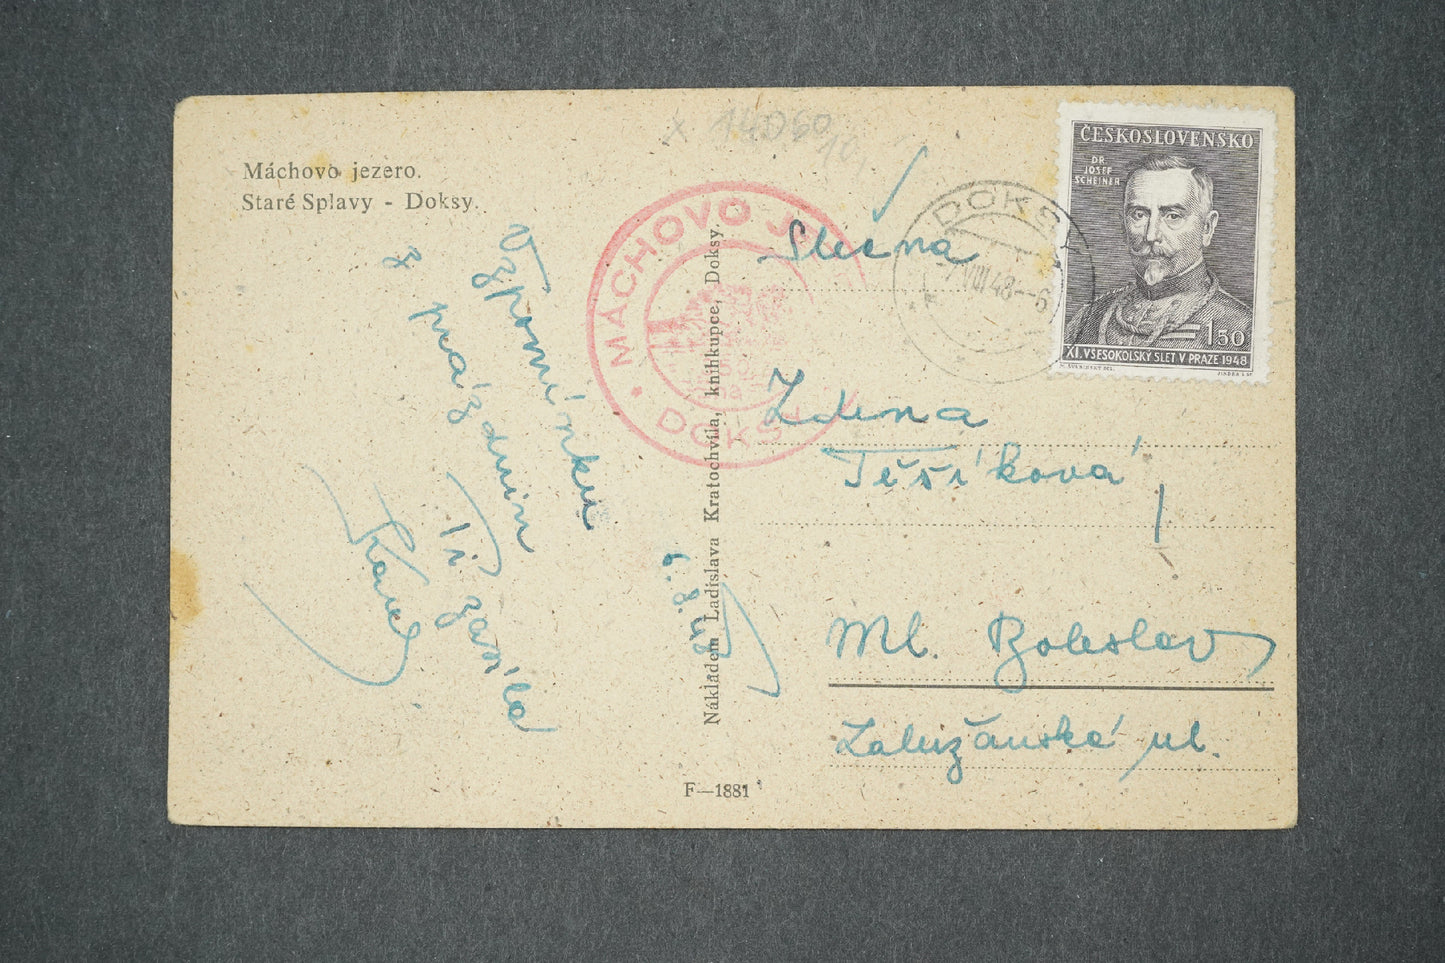 Máchovo jezero.
Staré Splavy - Doksy.
Vzpomínku
z prázdnin
Ti zasílá
Karel
6.8.48
Nákladem Ladislava Kratochvíla, knihkupce, Doksy.
F—1881
MÁCHOVO
DOKSY
DOKSY
7.VIII.48--6
ČESKOSLOVENSKO
DR.
JOSEF
SCHEINER
1.50
XI. VŠESOKOLSKÝ SLET V PRAZE 1948
Slečna
Zdena
Těšíková
Ml. Boleslav
Zalužanská ul.